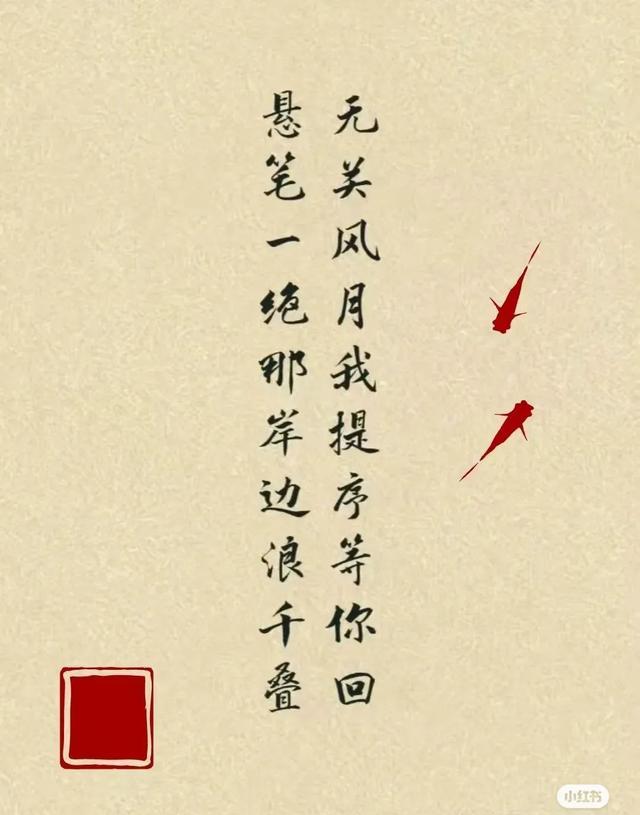 无关风月我提序等你回
悬笔一绝那岸边浪千叠
小红书